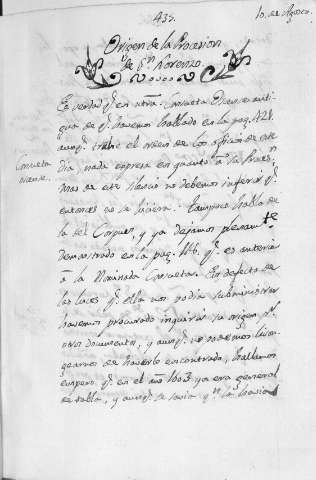 437.
10. de Agosto.
Origen de la Procesion
de Sn. Lorenzo.
Es verdad q. en ntra. Consueta Osca mas anti-
gua de q. havemos hablado en la pag. 421.
aunq. trahe el orden de los oficios de este
Consueta
oscense.
dia nada expresa en quanto a la Proces.n
Mas de este silencio no debemos inferir q.
entonces no se hiciera. Tampoco habla de
la del Corpus, y ya dejamos plenam.te
demostrado en la pag. 146. q. es anterior
à la Nominada Consueta. En defecto de
las luces q. ella nos podia subministrar
havemos procurado inquirir su origen p.r
otros documentos, y aunq. no podemos lison-
gearnos de haverlo encontrado, hallamos
empero q. en el año 1603 ya era general
de tabla, y aunq. se hacia